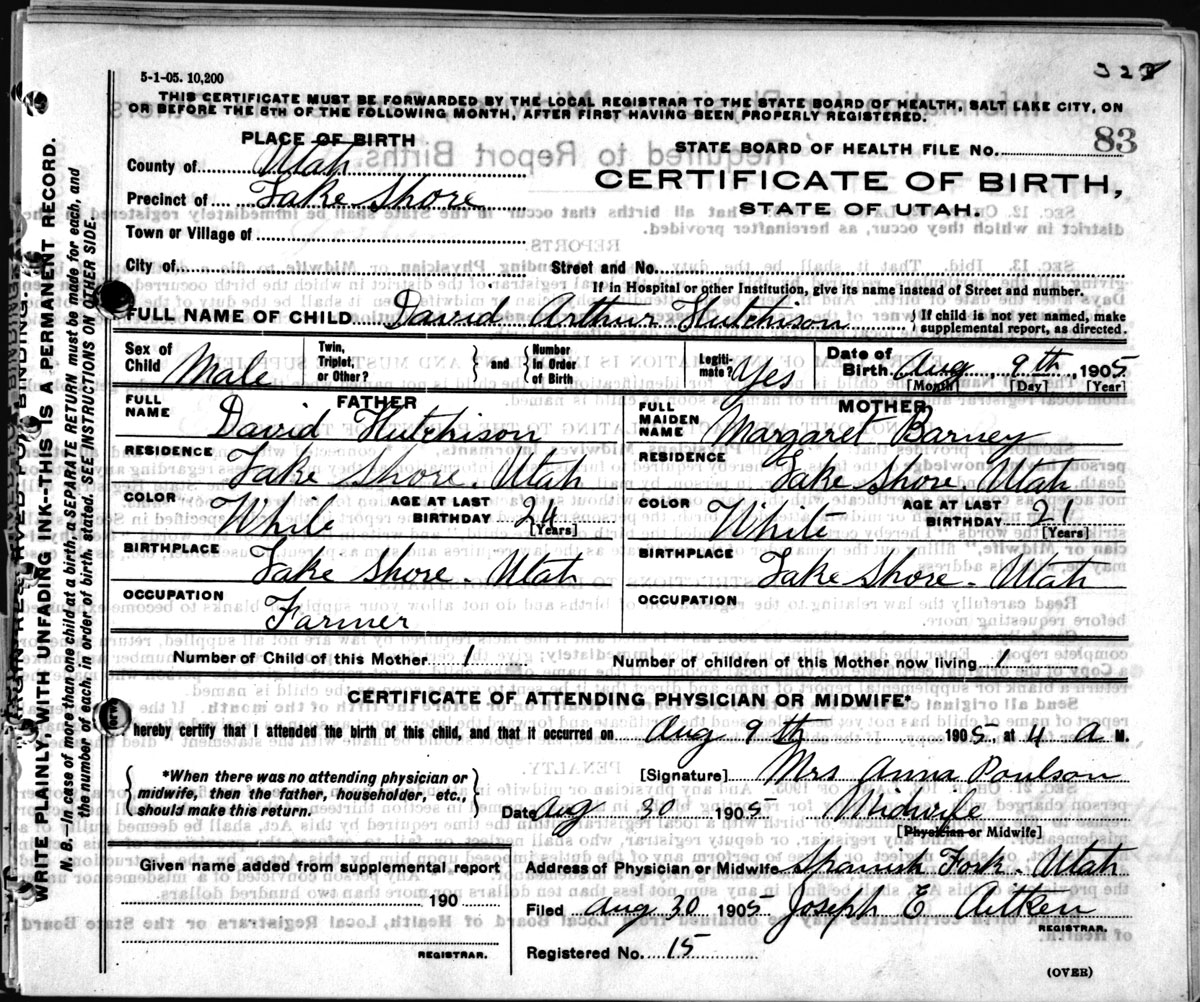 5-1-05. 10,200
THIS CERTIFICATE MUST BE FORWARDED BY THE LOCAL REGISTRAR TO THE STATE BOARD OF HEALTH, SALT LAKE CITY, ON
OR BEFORE THE 5TH OF THE FOLLOWING MONTH, AFTER FIRST HAVING BEEN PROPERLY REGISTERED.
PLACE OF BIRTH
STATE BOARD OF HEALTH FILE NO. 83
County of Utah
CERTIFICATE OF BIRTH,
Precinct of Lake Shore
STATE OF UTAH.
Town or Village of
City of Street and No.
If in Hospital or other Institution, give its name instead of Street and number.
FULL NAME OF CHILD David Arthur Hutchison { If child is not yet named, make
supplemental report, as directed.
Sex of Child Male Twin, Triplet, or Other? } and { Number in Order of Birth Legiti-mate? Yes Date of Birth. Aug 9th, 1905
[Month] [Day] [Year]
FATHER MOTHER
FULL NAME David Hutchison FULL MAIDEN NAME Margaret Barney
RESIDENCE Lake Shore. Utah RESIDENCE Lake Shore Utah
COLOR White AGE AT LAST BIRTHDAY 24 [Years] COLOR White AGE AT LAST BIRTHDAY 21 [Years]
BIRTHPLACE Lake Shore. Utah BIRTHPLACE Lake Shore. Utah
OCCUPATION Farmer OCCUPATION
Number of Child of this Mother 1 Number of children of this Mother now living 1
CERTIFICATE OF ATTENDING PHYSICIAN OR MIDWIFE*
hereby certify that I attended the birth of this child, and that it occurred on Aug 9th 1905 at 4 a M.
{ *When there was no attending physician or
midwife, then the father, householder, etc.,
should make this return. }
[Signature] Mrs Anna Poulson
Date Aug 30 1905 Midwife
[Physician or Midwife]
Given name added from supplemental report
190
REGISTRAR.
Address of Physician or Midwife Spanish Fork. Utah
Filed Aug 30 1905 Joseph E Aitken
REGISTRAR.
Registered No. 15
(OVER)
WRITE PLAINLY WITH UNFADING INK--THIS IS A PERMANENT RECORD.
N. B.—In case of more than one child at a birth, a SEPARATE RETURN must be made for each, and
the number of each, in order of birth, stated. SEE INSTRUCTIONS ON OTHER SIDE.